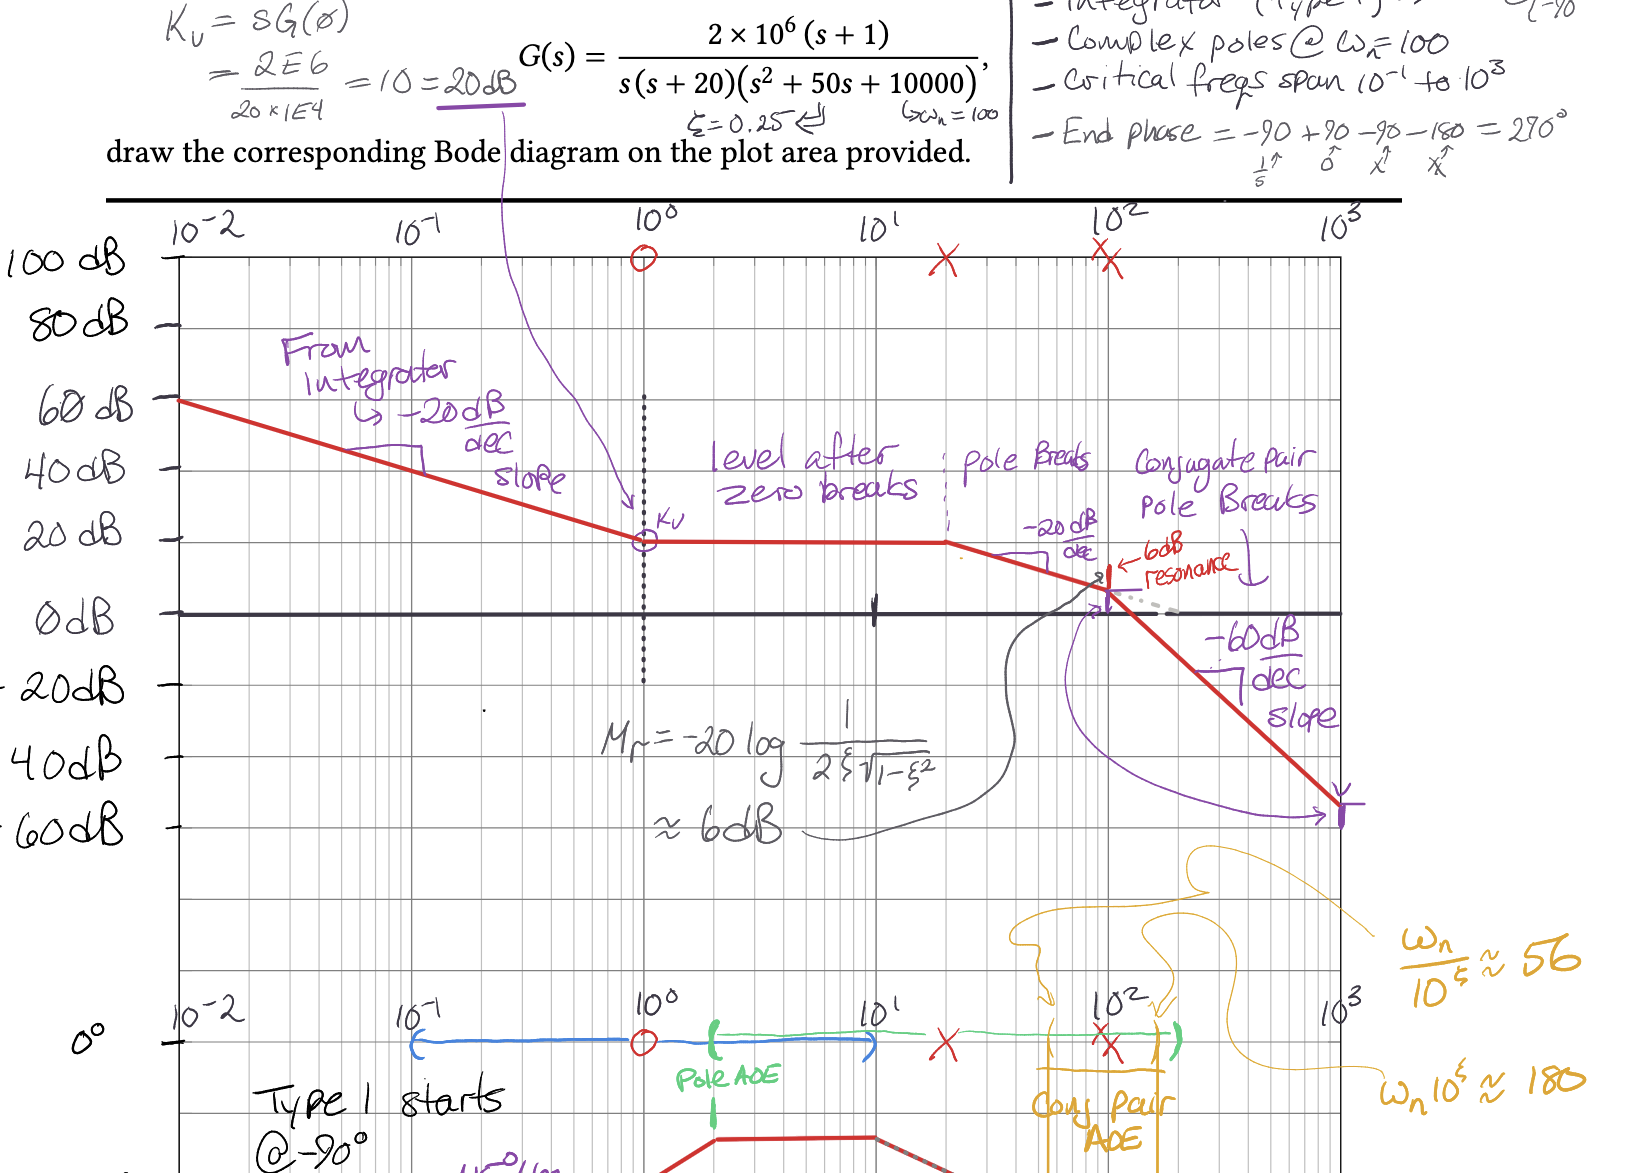 K_v = sG(0)
= 2E6 / 20×1E4 = 10 = 20dB
G(s) = 2 × 10^6 (s + 1) / s(s + 20)(s^2 + 50s + 10000),
ξ = 0.25 ↵
↳ω_n = 100
draw the corresponding Bode diagram on the plot area provided.
- Integrator (Type 1)
(-90
- Complex poles @ ω_n = 100
- Critical freqs span 10^-1 to 10^3
- End phase = -90 +90 -90 -180 = 270°
1/s↑ O↑ X↑ XX↑
10^-2 10^-1 10^0 10^1 10^2 10^3
100 dB
80 dB
60 dB
40 dB
20 dB
0dB
- 20dB
40dB
- 60dB
From
integrator
↳ -20 dB/dec
slope
Kv
level after
zero breaks
Pole Breaks
-20 dB/dec
Conjugate pair
Pole Breaks
← 6dB
resonance
-60 dB/dec
slope
M_r = -20 log 1 / 2ξ√1-ξ^2
≈ 6dB
ω_n / 10^ξ ≈ 56
10^-2 10^-1 10^0 10^1 10^2 10^3
0°
ω_n 10^ξ ≈ 180
Pole AOE
Conj Pair
AOE
Type 1 starts
@ -90°